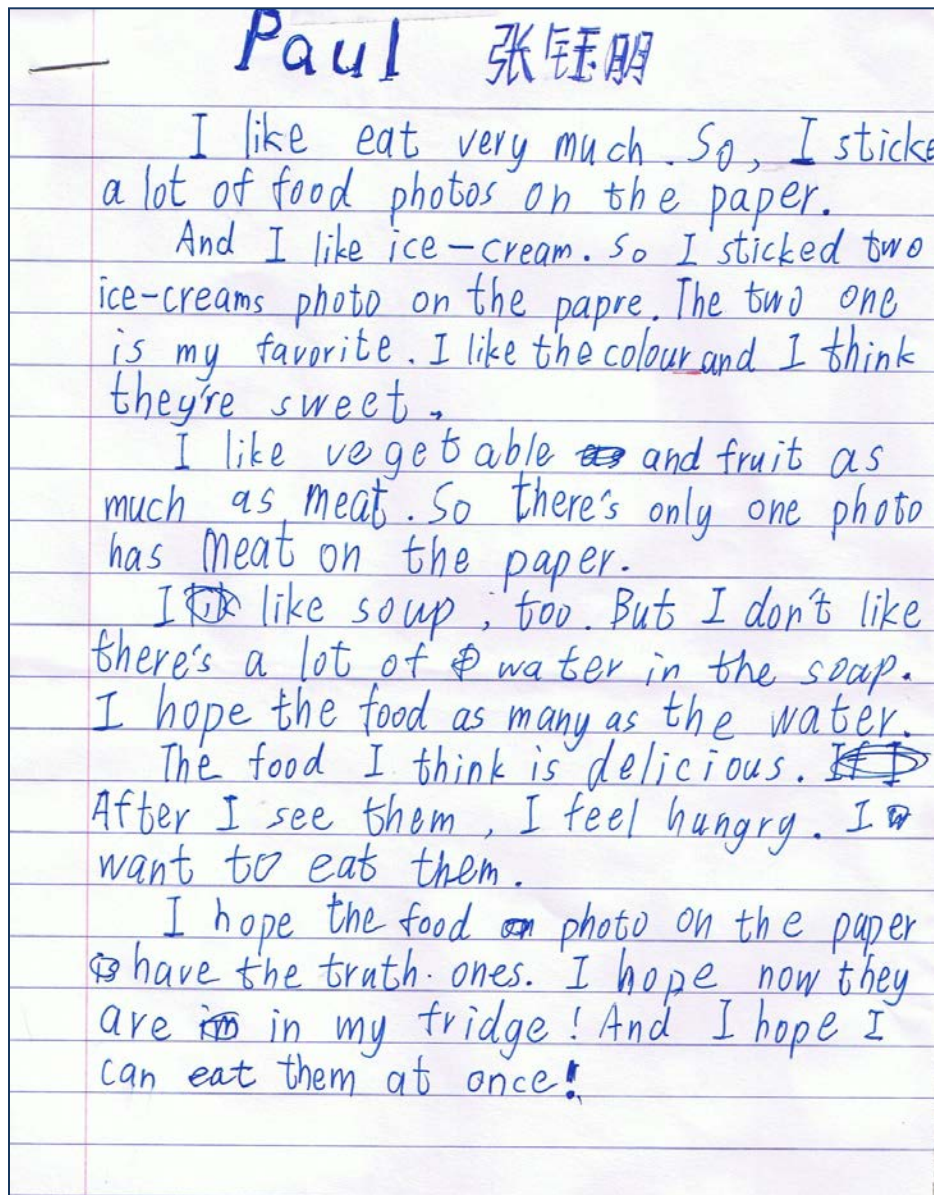 Paul 张钰明
I like eat very much. So, I sticke
a lot of food photos on the paper.
And I like ice-cream. So I sticked two
ice-creams photo on the papre. The two one
is my favorite. I like the colour and I think
they're sweet.
I like vegetable and fruit as
much as meat. So there's only one photo
has meat on the paper.
I like soup, too. But I don't like
there's a lot of water in the soap.
I hope the food as many as the water.
The food I think is delicious.
After I see them, I feel hungry. I
want to eat them.
I hope the food photo on the paper
have the truth ones. I hope now they
are in my fridge! And I hope I
can eat them at once!